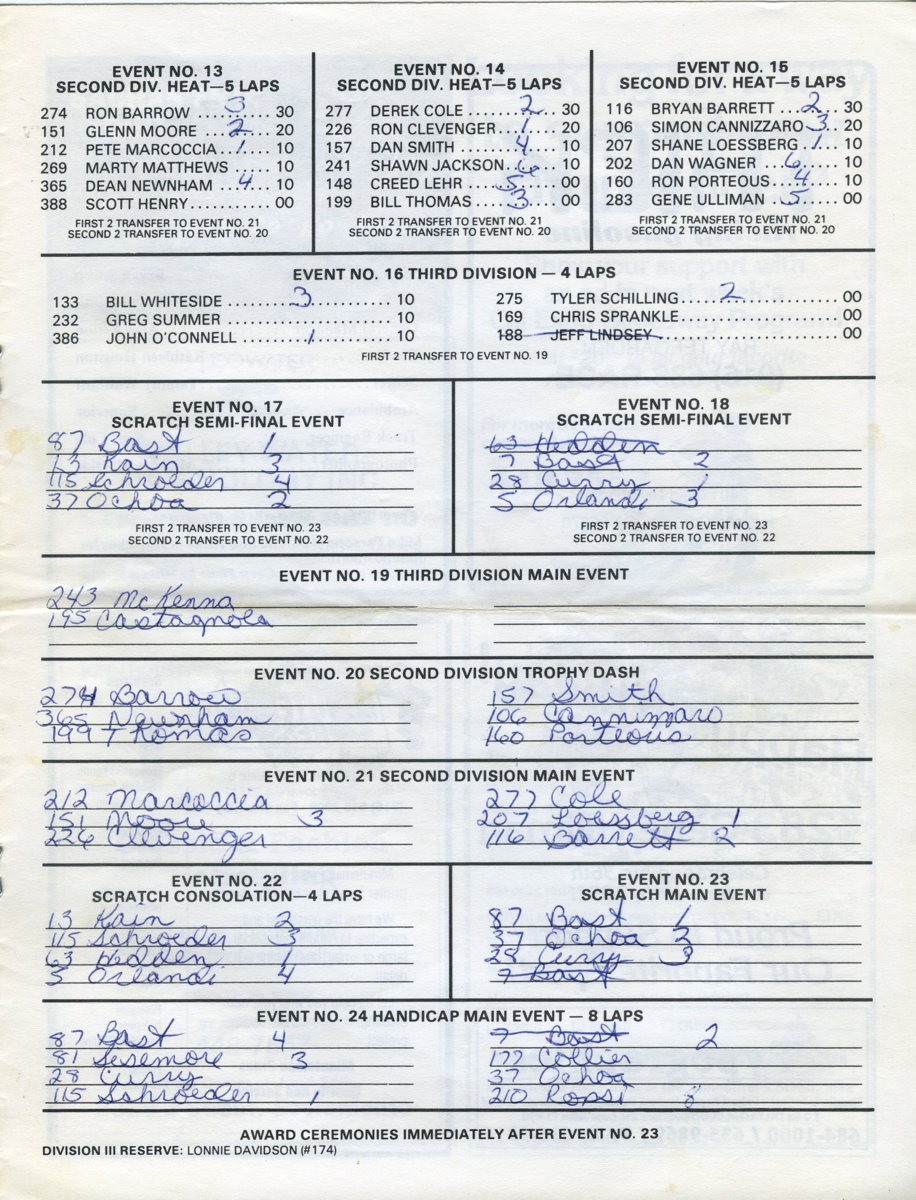 EVENT NO. 13
SECOND DIV. HEAT—5 LAPS
274 RON BARROW ....3.... 30
151 GLENN MOORE ...2.... 20
212 PETE MARCOCCIA ..1.... 10
269 MARTY MATTHEWS ...... 10
365 DEAN NEWNHAM ..4... 10
388 SCOTT HENRY........... 00
FIRST 2 TRANSFER TO EVENT NO. 21
SECOND 2 TRANSFER TO EVENT NO. 20
EVENT NO. 14
SECOND DIV. HEAT—5 LAPS
277 DEREK COLE ....2... 30
226 RON CLEVENGER ..1.... 20
157 DAN SMITH .....4.... 10
241 SHAWN JACKSON..6... 10
148 CREED LEHR ...5.... 00
199 BILL THOMAS ...3.... 00
FIRST 2 TRANSFER TO EVENT NO. 21
SECOND 2 TRANSFER TO EVENT NO. 20
EVENT NO. 15
SECOND DIV. HEAT—5 LAPS
116 BRYAN BARRETT ..2... 30
106 SIMON CANNIZZARO .3.. 20
207 SHANE LOESSBERG .1.... 10
202 DAN WAGNER ...6.... 10
160 RON PORTEOUS ..4.... 10
283 GENE ULLIMAN ..5.... 00
FIRST 2 TRANSFER TO EVENT NO. 21
SECOND 2 TRANSFER TO EVENT NO. 20
EVENT NO. 16 THIRD DIVISION — 4 LAPS
133 BILL WHITESIDE ........3........... 10
232 GREG SUMMER ...................... 10
386 JOHN O'CONNELL .......1.......... 10
275 TYLER SCHILLING.....2............ 00
169 CHRIS SPRANKLE .................. 00
188 JEFF LINDSEY..................... 00
FIRST 2 TRANSFER TO EVENT NO. 19
EVENT NO. 17
SCRATCH SEMI-FINAL EVENT
87 Bast 1
13 Kain 3
115 Schroeder 4
37 Ochoa 2
FIRST 2 TRANSFER TO EVENT NO. 23
SECOND 2 TRANSFER TO EVENT NO. 22
EVENT NO. 18
SCRATCH SEMI-FINAL EVENT
63 Hedden
7 Bast 2
28 Curry 1
5 Orlandi 3
FIRST 2 TRANSFER TO EVENT NO. 23
SECOND 2 TRANSFER TO EVENT NO. 22
EVENT NO. 19 THIRD DIVISION MAIN EVENT
243 McKenna
195 Castagnola
EVENT NO. 20 SECOND DIVISION TROPHY DASH
274 Barrow
365 Newnham
199 Thomas
157 Smith
106 Cannizzaro
160 Porteous
EVENT NO. 21 SECOND DIVISION MAIN EVENT
212 Marcoccia
151 Moore 3
226 Clevenger
277 Cole
207 Loessberg 1
116 Barrett 2
EVENT NO. 22
SCRATCH CONSOLATION—4 LAPS
13 Kain 2
115 Schroeder 3
63 Hedden 1
5 Orlandi 4
EVENT NO. 23
SCRATCH MAIN EVENT
87 Bast 1
37 Ochoa 2
28 Curry 3
7 Bast
EVENT NO. 24 HANDICAP MAIN EVENT — 8 LAPS
87 Bast 4
81 Sesemore 3
28 Curry
115 Schroeder 1
7 Bast 2
177 Collier
37 Ochoa
210 Rossi
AWARD CEREMONIES IMMEDIATELY AFTER EVENT NO. 23
DIVISION III RESERVE: LONNIE DAVIDSON (#174)